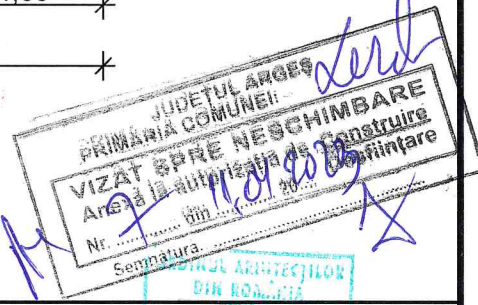 JUDEȚUL ARGEȘ
PRIMĂRIA COMUNEI:
VIZAT SPRE NESCHIMBARE
Anexă la autorizația de Construire
Desființare
Nr. 7 din 11.01 2023
Semnătura.
ORDINUL ARHITECȚILOR
DIN ROMÂNIA